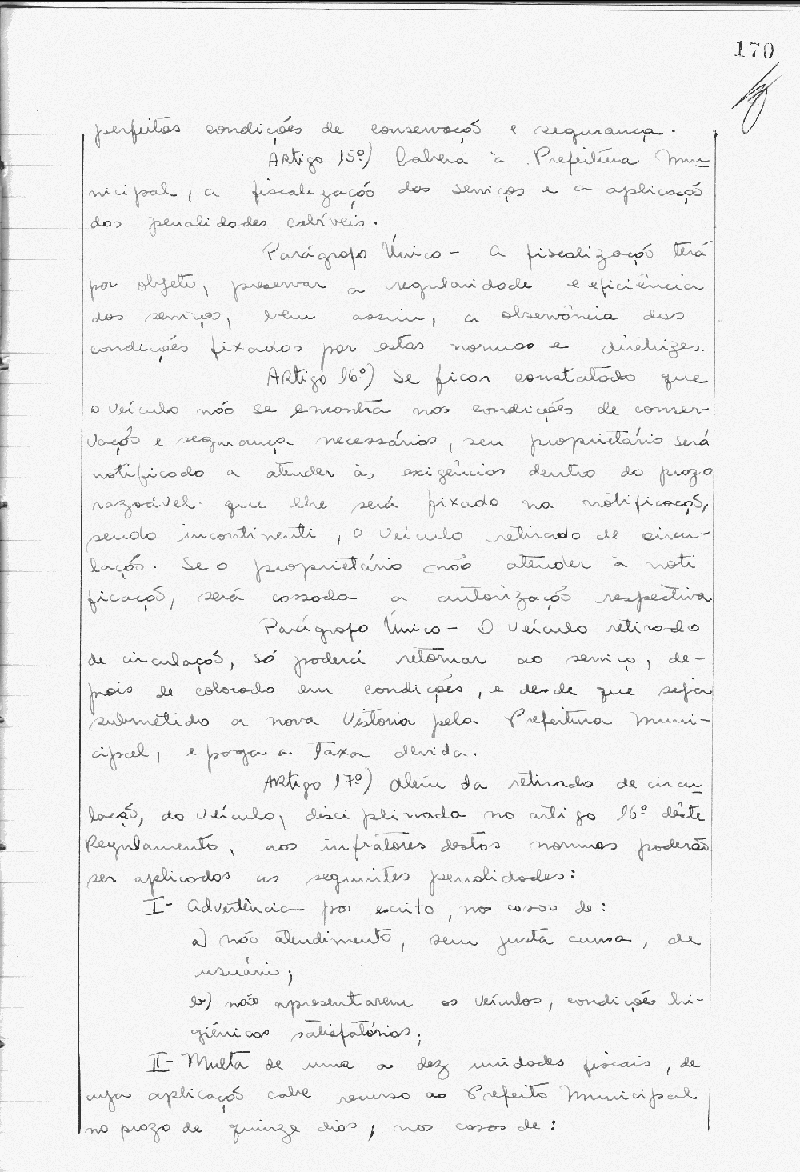 170
perfeitas condições de conservação e segurança.
Artigo 15º) Caberá à Prefeitura Mu-
nicipal, a fiscalização dos serviços e a aplicação
das penalidades cabíveis.
Parágrafo Único - A fiscalização terá
por objeto, preservar a regularidade e eficiência
dos serviços, bem assim, a observância das
condições fixadas por estas normas e diretrizes.
Artigo 16º) Se ficar constatado que
o veículo não se encontra nas condições de conser-
vação e segurança necessárias, seu proprietário será
notificado a atender às exigências dentro do prazo
razoável que lhe será fixado na notificação,
sendo incontinenti, o veículo retirado de circu-
lação. Se o proprietário não atender à noti
ficação, será cassada a autorização respectiva
Parágrafo Único - O veículo retirado
de circulação, só poderá retornar ao serviço, de-
pois de colocado em condições, e desde que seja
submetido a nova vistoria pela Prefeitura Muni-
cipal, e paga a taxa devida.
Artigo 17º) Além da retirada de circu-
lação, do veículo, disciplinada no artigo 16º dêste
Regulamento, aos infratôres destas normas poderão
ser aplicadas as seguintes penalidades:
I- Advertência por escrito, nos casos de:
a) não atendimento, sem justa causa, de
usuário;
b) não apresentarem os veículos, condições hi-
giênicas satisfatórias;
II- Multa de uma a dez unidades fiscais, de
cuja aplicação cabe recurso ao Prefeito Municipal
no prazo de quinze dias, nos casos de: